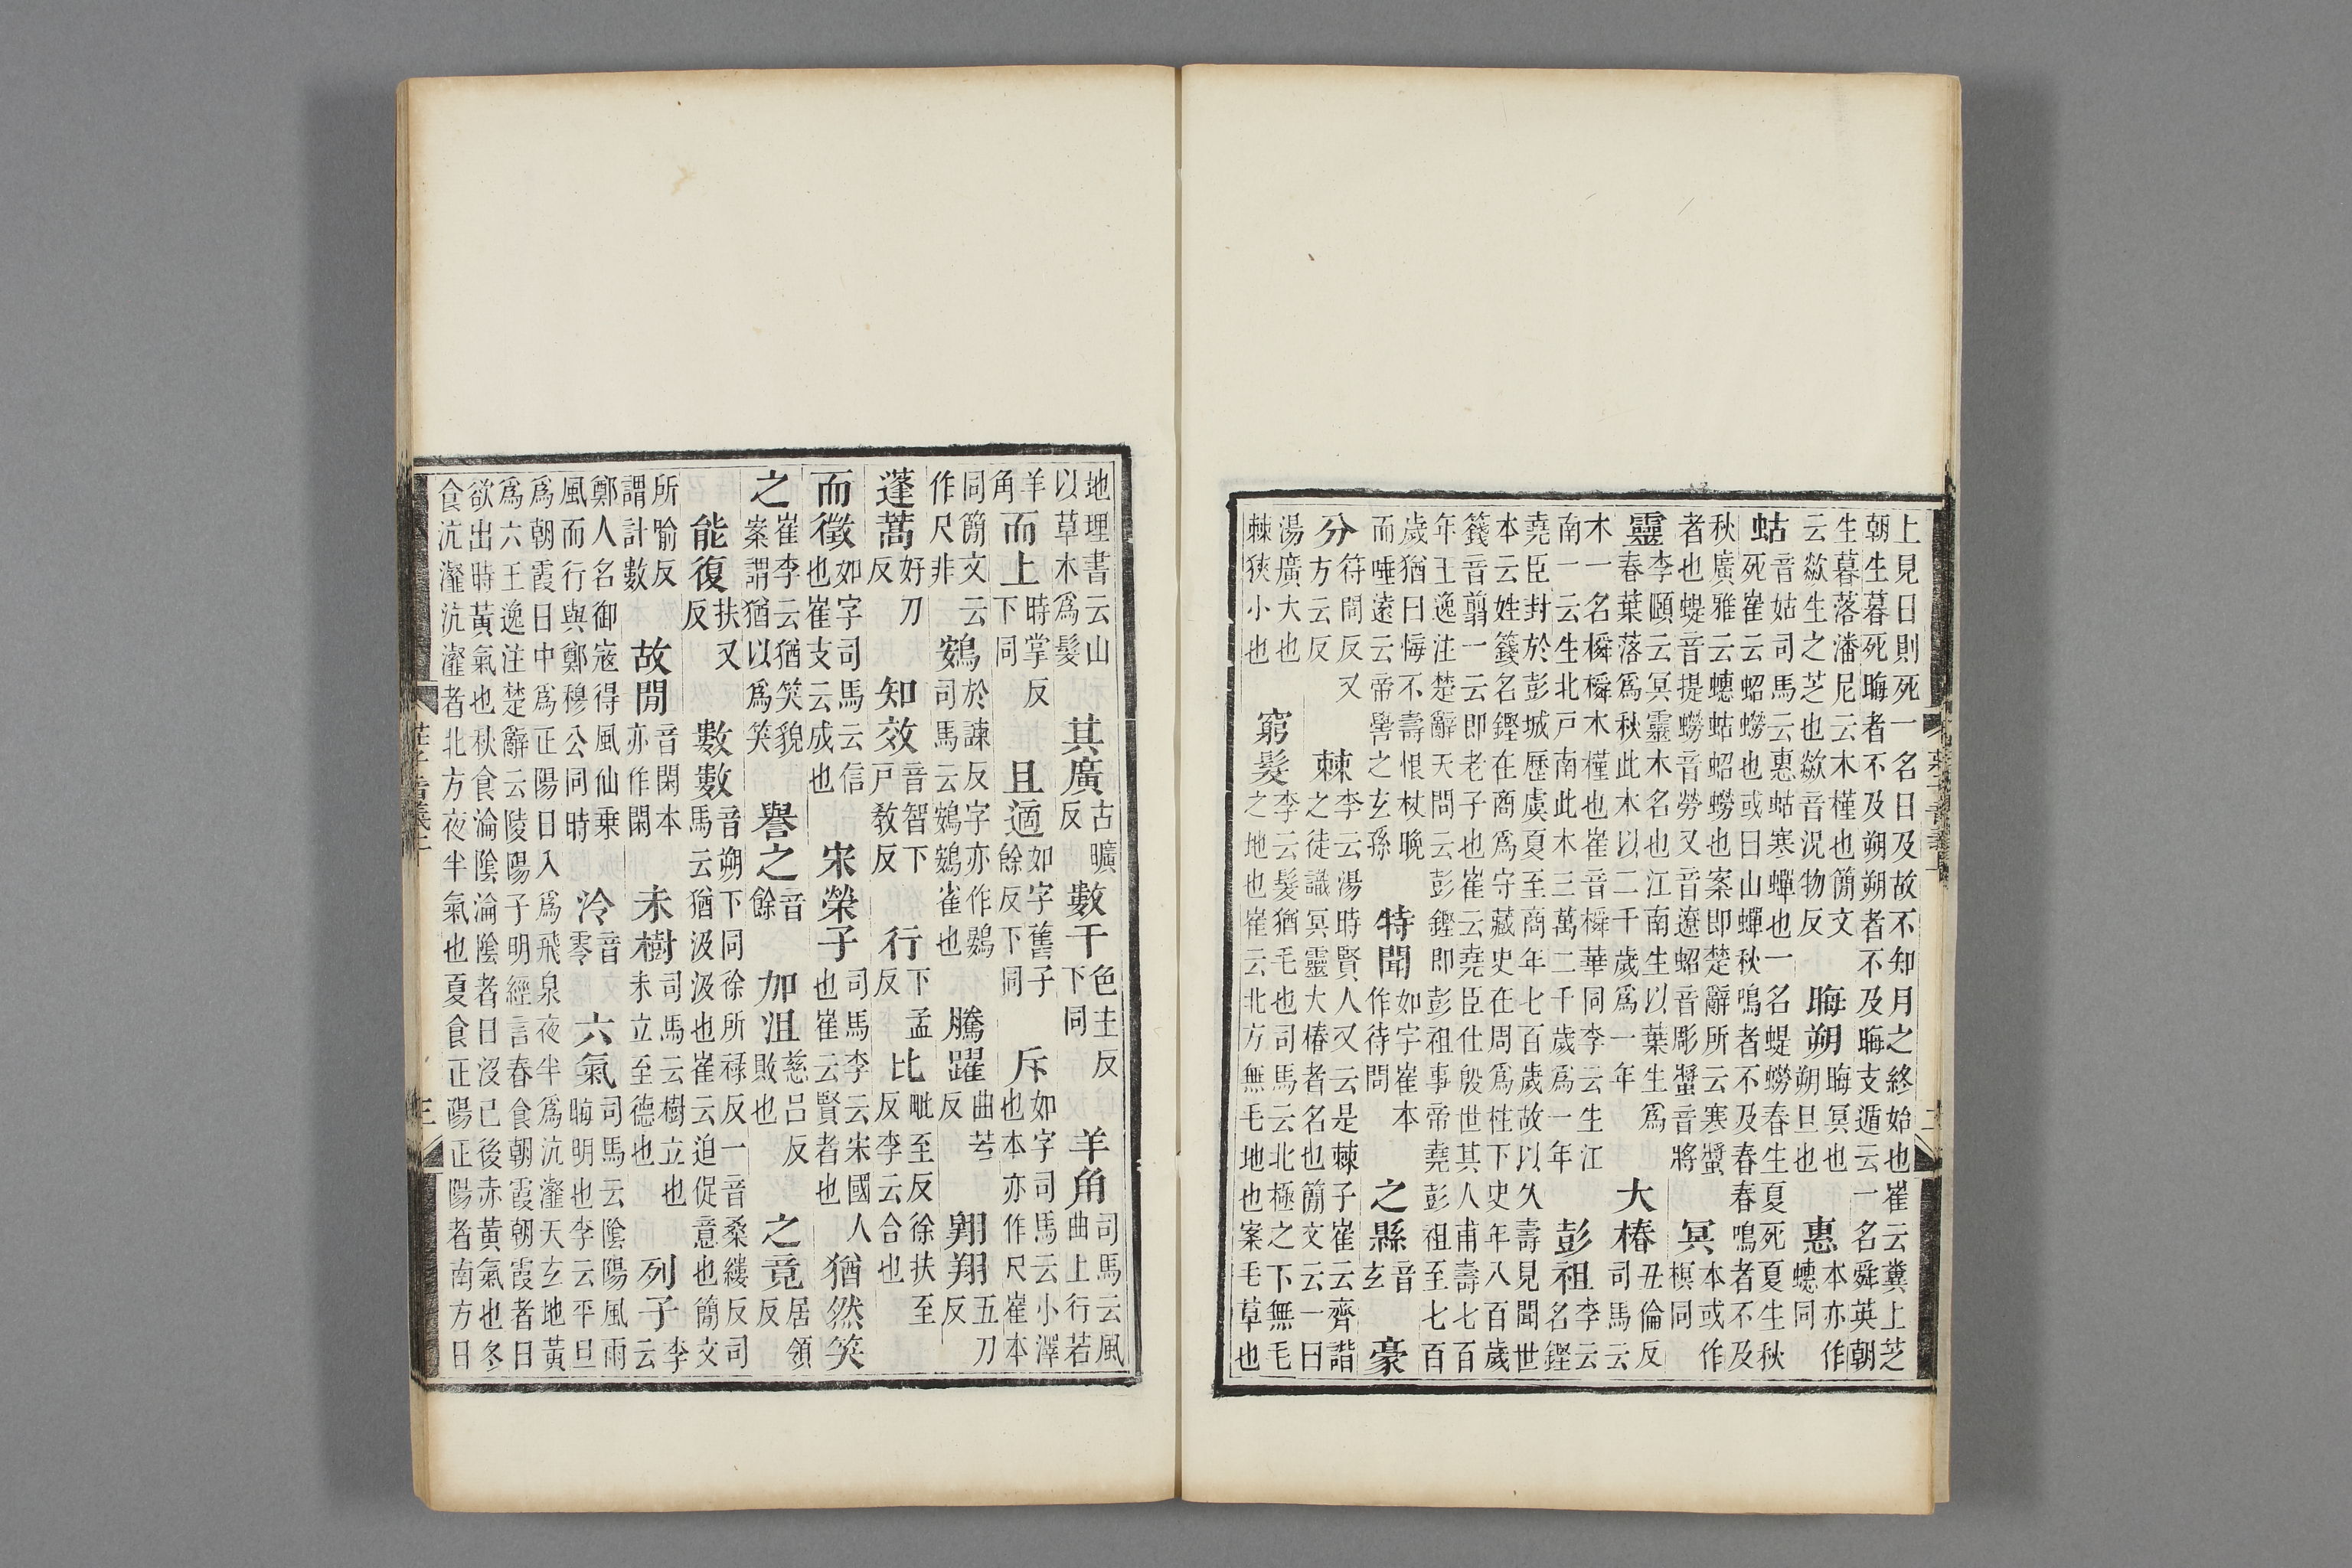 莊子音義上 二
上見日則死一名日及故不知月之終始也崔云糞上芝
朝生暮死晦者不及朔朔者不及晦支遁云一名舜英朝
生暮落潘尼云木槿也簡文云歘生之芝也歘音況物反 晦朔 晦冥也朔旦也 惠 本亦作蟪同
蛄 音姑司馬云惠蛄寒蟬也一名蝭蟧春生夏死夏生秋死崔云蛁蟧也或曰山蟬秋鳴者不及春春鳴者不及
秋廣雅云蟪蛄蛁蟧也案即楚辭所云寒螿者也蝭音提蟧音勞又音遼蛁音彫螿音將 冥 本或作榠同
靈 李頤云冥靈木名也江南生以葉生爲春葉落爲秋此木以二千歲爲一年 大椿 丑倫反司馬云
木一名橓橓木槿也崔音橓華同李云生江南一云生北戸南此木三萬二千歲爲一年 彭祖 李云名鏗
堯臣封於彭城歷虞夏至商年七百歲故以久壽見聞世
本云姓籛名鏗在商爲守藏史在周爲柱下史年八百歲
籛音翦一云即老子也崔云堯臣仕殷世其人甫壽七百
年王逸注楚辭天問云彭鏗即彭祖事帝堯彭祖至七百
歲猶曰悔不壽恨杖晚而唾遠云帝嚳之玄孫 特聞 如字崔本作待問 之縣 音玄 豪
分 符問反又方云反 棘 李云湯時賢人又云是棘子崔云齊諧之徒識冥靈大椿者名也簡文云一曰
湯廣大也棘狹小也 窮髮 李云髮猶毛也司馬云北極之下無毛之地也崔云北方無毛地也案毛草也
地理書云山以草木爲髮 其廣 古曠反 數千 色主反下同 羊角 司馬云風曲上行若
羊角 而上 時掌反下同 且適 如字舊子餘反下同 斥 如字司馬云小澤也本亦作尺崔本
同簡文云作尺非 鴳 於諫反字亦作鷃司馬云鴳鴳雀也 騰躍 曲若反 翱翔 五刀反
蓬蒿 好刀反 知效 音智下戸教反 行 下孟反 比 毗至反徐扶至反李云合也
而徵 如字司馬云信也崔支云成也 宋榮子 司馬李云宋國人也崔云賢者也 猶然笑
之 崔李云猶笑貌案謂猶以爲笑 譽之 音餘 加沮 慈呂反敗也 之竟 居領反
能復 扶又反 數數 音朔下同徐所祿反一音桑縷反司馬云猶汲汲也崔云迫促意也簡文
所喻反謂計數 故閒 音閑本亦作閑 未樹 司馬云樹立也未立至德也 列子 李云
鄭人名御寇得風仙乗風而行與鄭穆公同時 泠 音零 六氣 司馬云陰陽風雨晦明也李云平旦
爲朝霞日中爲正陽日入爲飛泉夜半爲沆瀣天玄地黃
爲六王逸注楚辭云陵陽子明經言春食朝霞朝霞者日
欲出時黃氣也秋食淪陰淪陰者日没已後赤黃氣也冬
食沆瀣沆瀣者北方夜半氣也夏食正陽正陽者南方日
莊子音義上 三